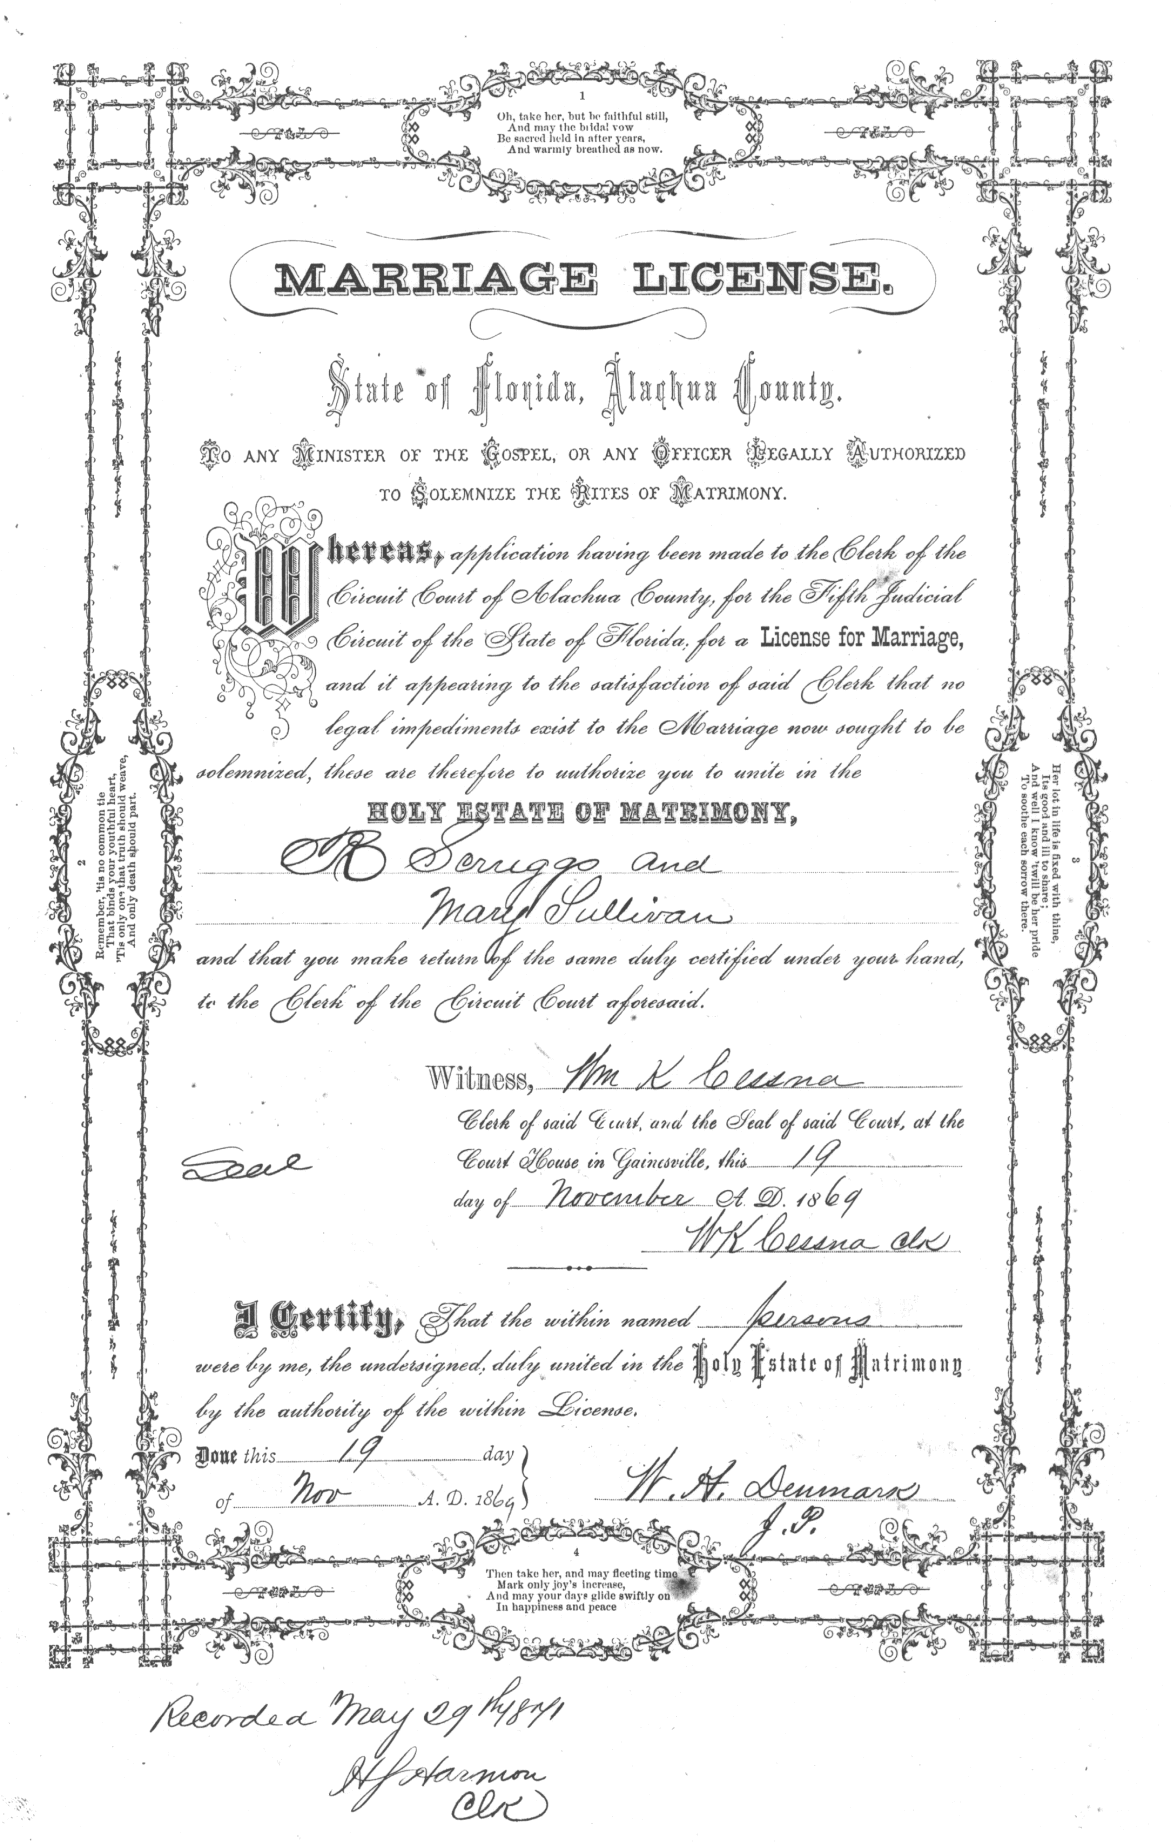 1
Oh, take her, but be faithful still,
And may the bridal vow
Be sacred held in after years,
And warmly breathed as now.
MARRIAGE LICENSE.
State of Florida, Alachua County.
TO ANY MINISTER OF THE GOSPEL, OR ANY OFFICER LEGALLY AUTHORIZED
TO SOLEMNIZE THE RITES OF MATRIMONY.
Whereas, application having been made to the Clerk of the
Circuit Court of Alachua County, for the Fifth Judicial
Circuit of the State of Florida, for a License for Marriage,
and it appearing to the satisfaction of said Clerk that no
legal impediments exist to the Marriage now sought to be
solemnized, these are therefore to authorize you to unite in the
HOLY ESTATE OF MATRIMONY,
R Scruggs and
Mary Sullivan
and that you make return of the same duly certified under your hand,
to the Clerk of the Circuit Court aforesaid.
2
Remember, 'tis no common tie
That binds your youthful heart,
'Tis only one that truth should weave,
And only death should part.
3
Her lot in life is fixed with thine,
Its good and ill to share;
And well I know 'twill be her pride
To soothe each sorrow there.
Witness, Wm K Cessna
Clerk of said Court, and the Seal of said Court, at the
Seal
Court House in Gainesville, this 19
day of November A. D. 1869
WK Cessna Clk
I Certify, That the within named persons
were by me, the undersigned, duly united in the Holy Estate of Matrimony
by the authority of the within License.
Done this 19 day
of Nov A. D. 1869
W. H. Denmark
J. P.
4
Then take her, and may fleeting time
Mark only joy's increase,
And may your days glide swiftly on
In happiness and peace
Recorded May 29th 1871
HJ Harmon
Clk